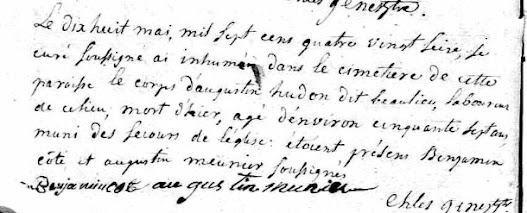 Le dix huit mai, mil sept cens quatre vingt seize, je
curé soussigné ai inhumé dans le cimetiere de cette
paroisse le corps d'augustin hudon dit beaulieu, laboureur
de ce lieu, mort d'hier, agé d'environ cinquante sept ans
muni des secours de l'église: étoient présens Benjamin
côté et augustin meunier soussignés
Benjamin coté augustin munier